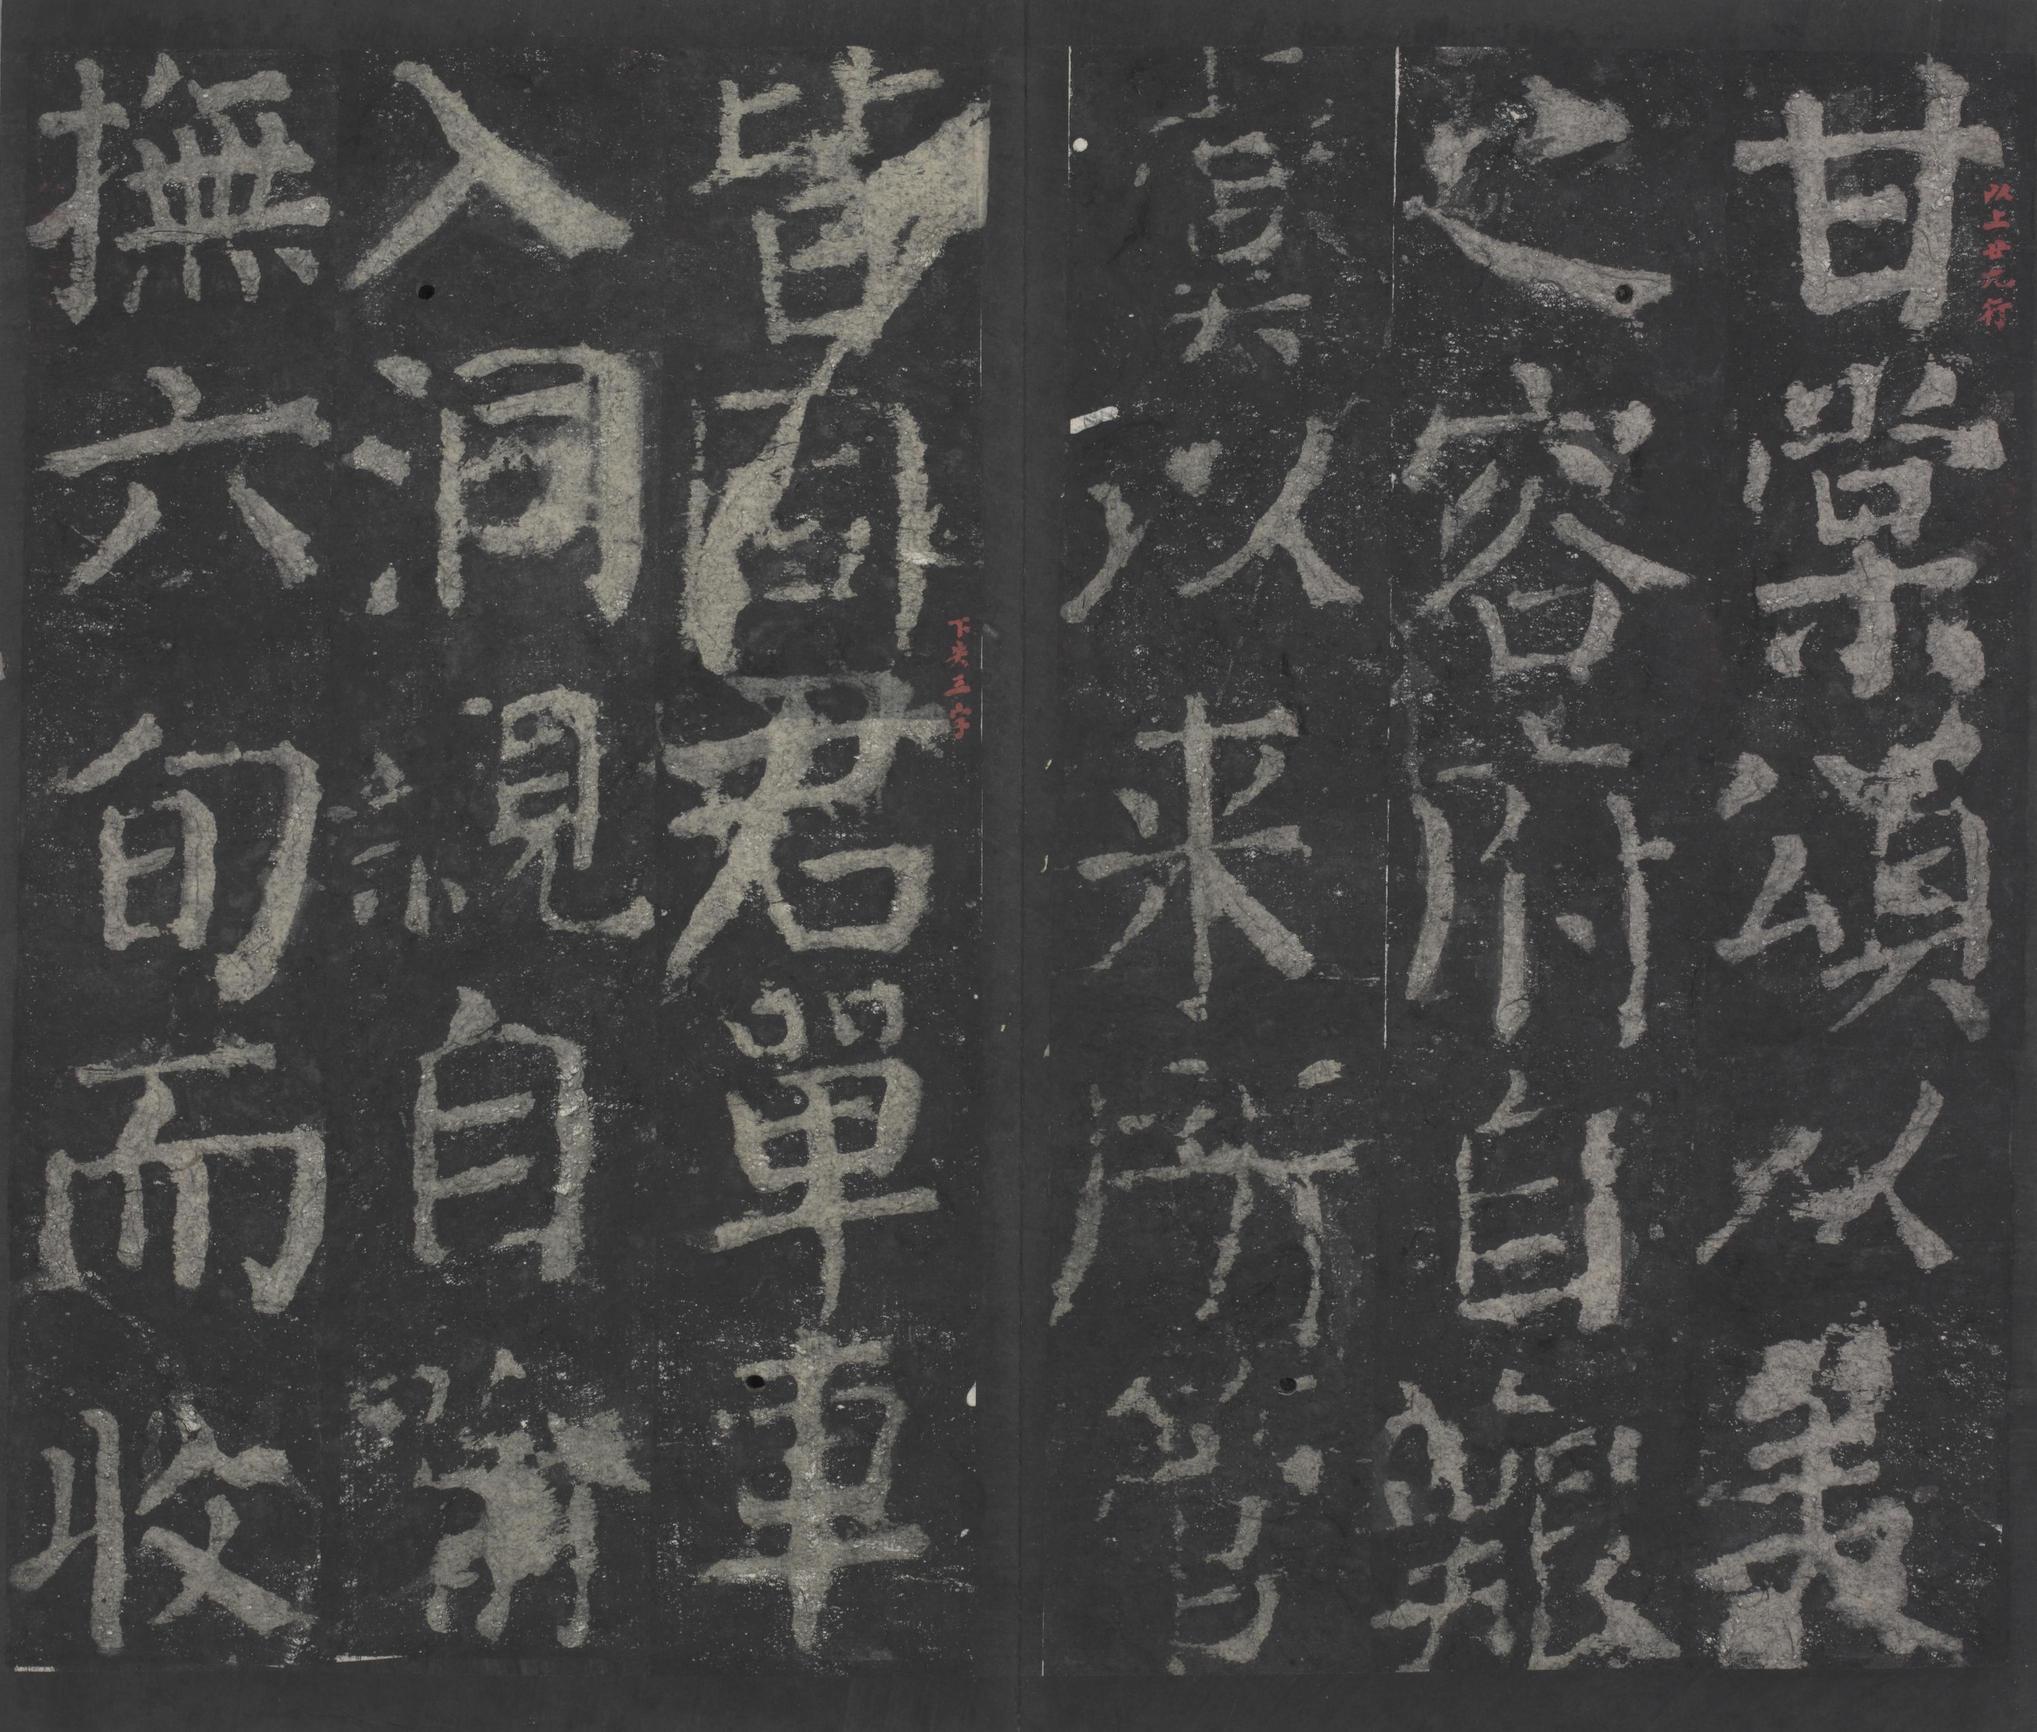 甘棠頌以美
之容府自艱
虞以来所管
皆固君單車
入洞親自諭
撫六旬而收
以上廿九行
下失三字